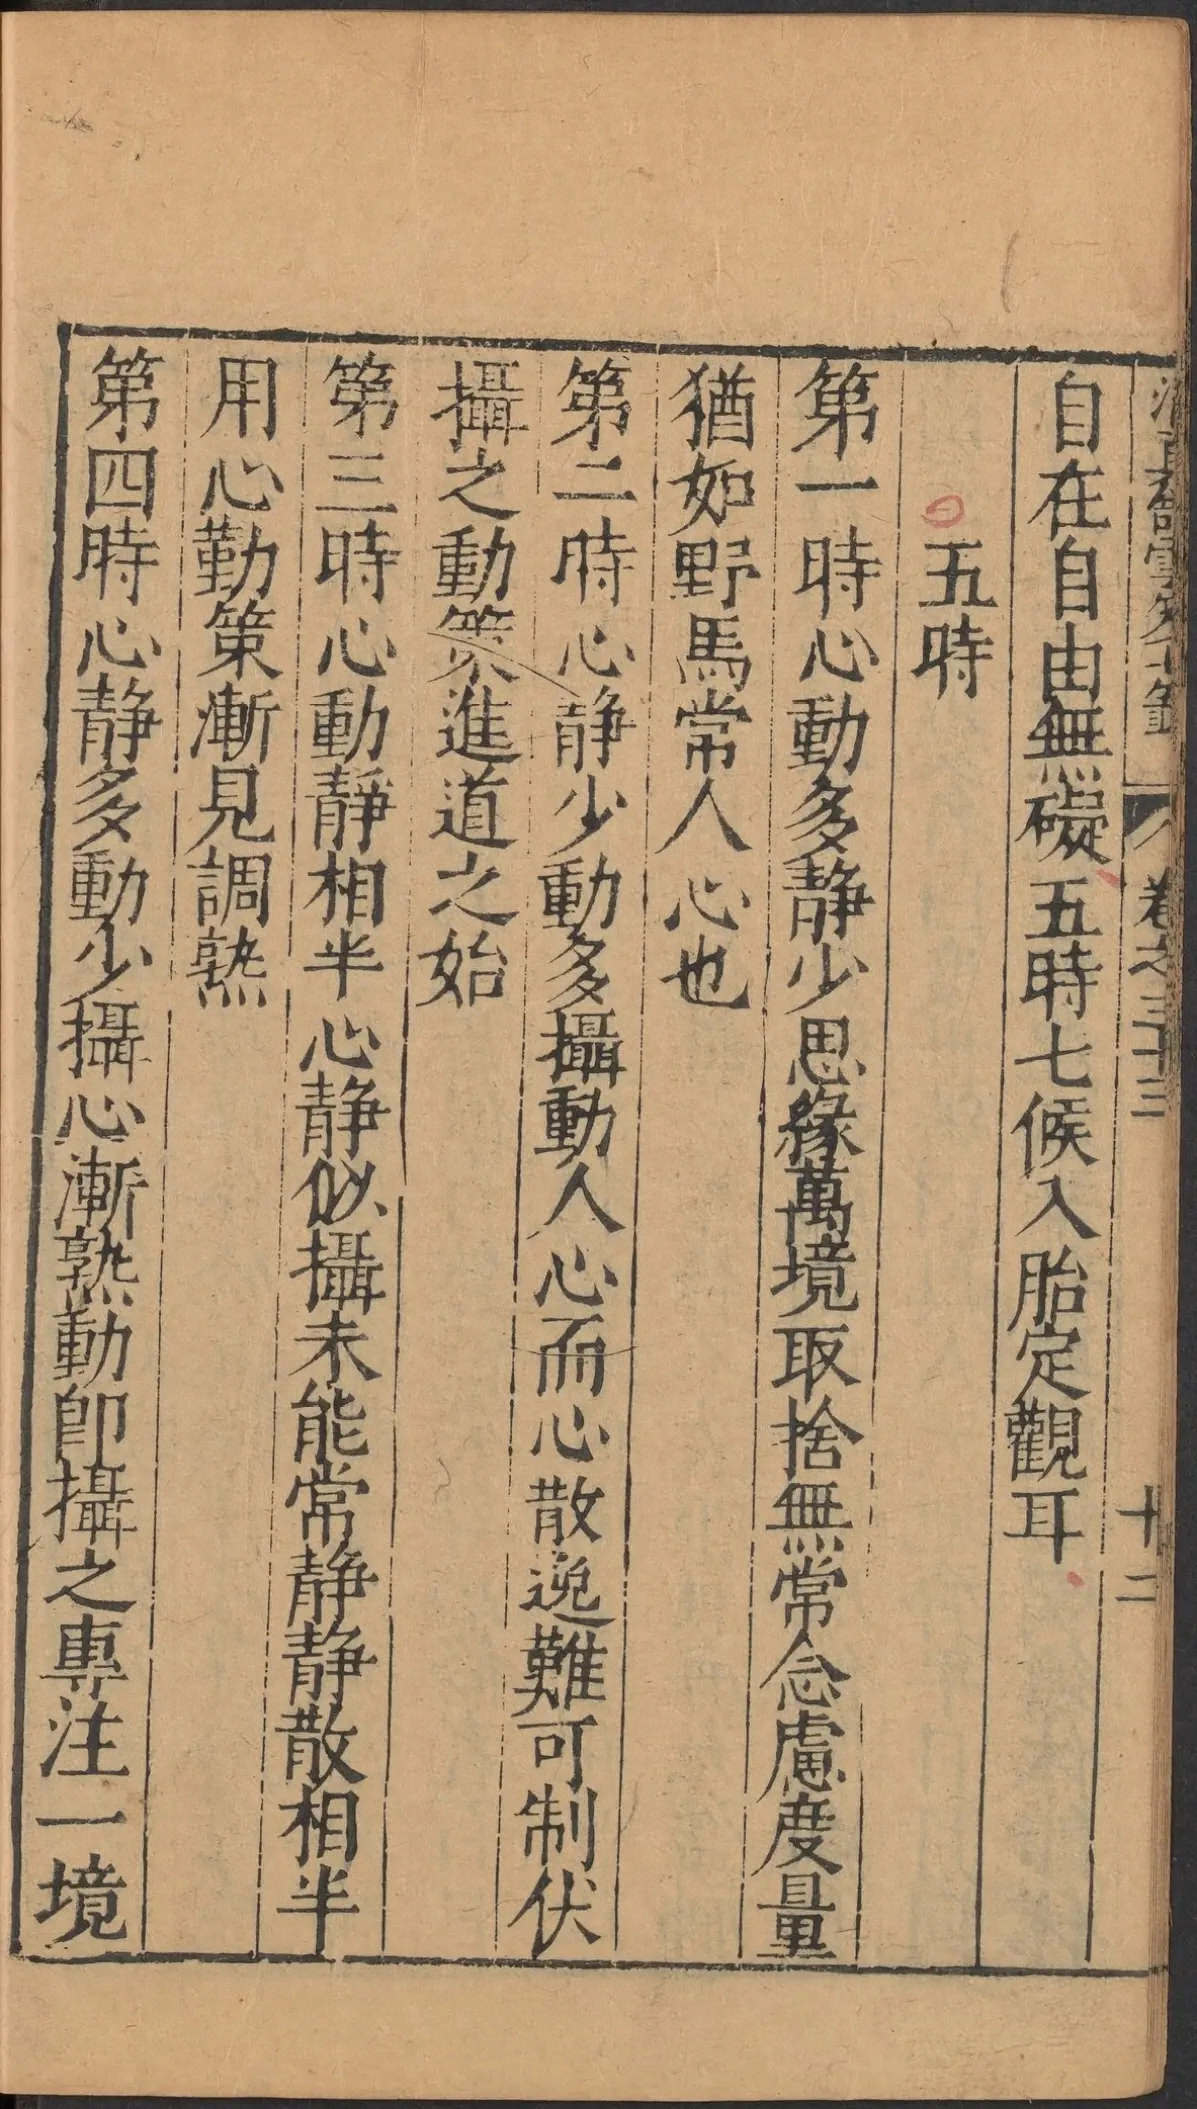 卷之三十三
十二
自在自由無礙五時七候入胎定觀耳
五時
第一時心動多静少思緣萬境取捨無常念慮度量
猶如野馬常人心也
第二時心静少動多攝動人心而心散逸難可制伏
攝之動策進道之始
第三時心動靜相半心静似攝未能常静静散相半
用心勤策漸見調熟
第四時心静多動少攝心漸熟動即攝之專注一境